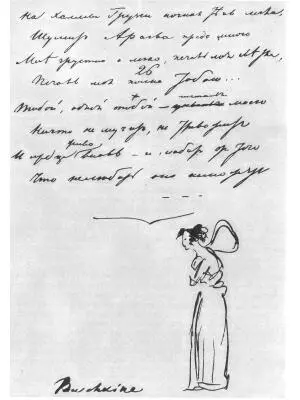 На холмы Грузии ночная мгла
Шумит Арагва предо мною
Мне грустно и легко, печаль моя
26
Печаль моя полна Тобою...
Тобой, одной тобой — моего
Ничто не мучит, не тревожит
И сердце вновь — и любит от того
Что не любить оно не может